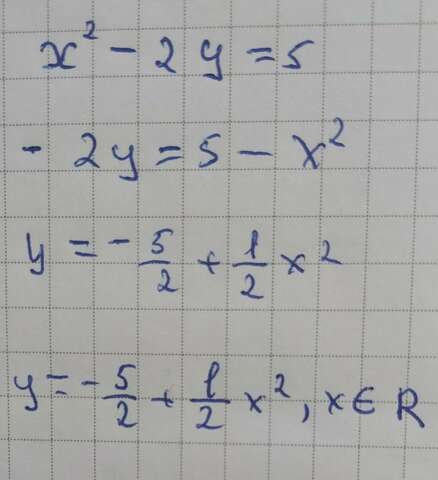 x² - 2y = 5
- 2y = 5 - x²
y = - 5/2 + 1/2 x²
y = - 5/2 + 1/2 x², x ∈ R